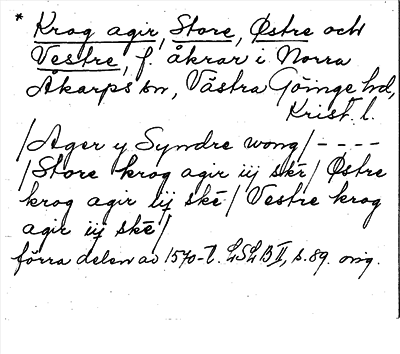 * Krog agir, Store, Østre och
Vestre, f. åkrar i Norra
Åkarps sn, Västra Göinge hd,
Krist. l.
/Ager y Syndre wong/----
/Store krog agir iij skē/ Østre
krog agir iij skē/ Vestre krog
agir iij skē/
förra delen av 1570-t. LSLB II, s. 89. orig.